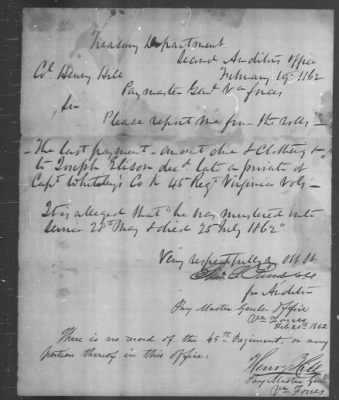 Treasury Department
Second Auditors Office
Col Henry Hill February 19th 1862
Paymaster Genl Va forces
Sir
Please report me from the rolls -
The last payment - am't due & Clothing &
to Joseph Elison decd late a private of
Capt Co K 45 Regt Virginia Vols -
It is alleged that "he was mustered into
service 28th May & died 25 July 1862"
Very respectfully Ob St
for Auditor
Pay Master Genls Office
Va Forces
Feb 20th 1862
There is no record of the 45th Regiment or any
portion thereof in this office.
Henry Hill
Pay Master Genl
Va Forces